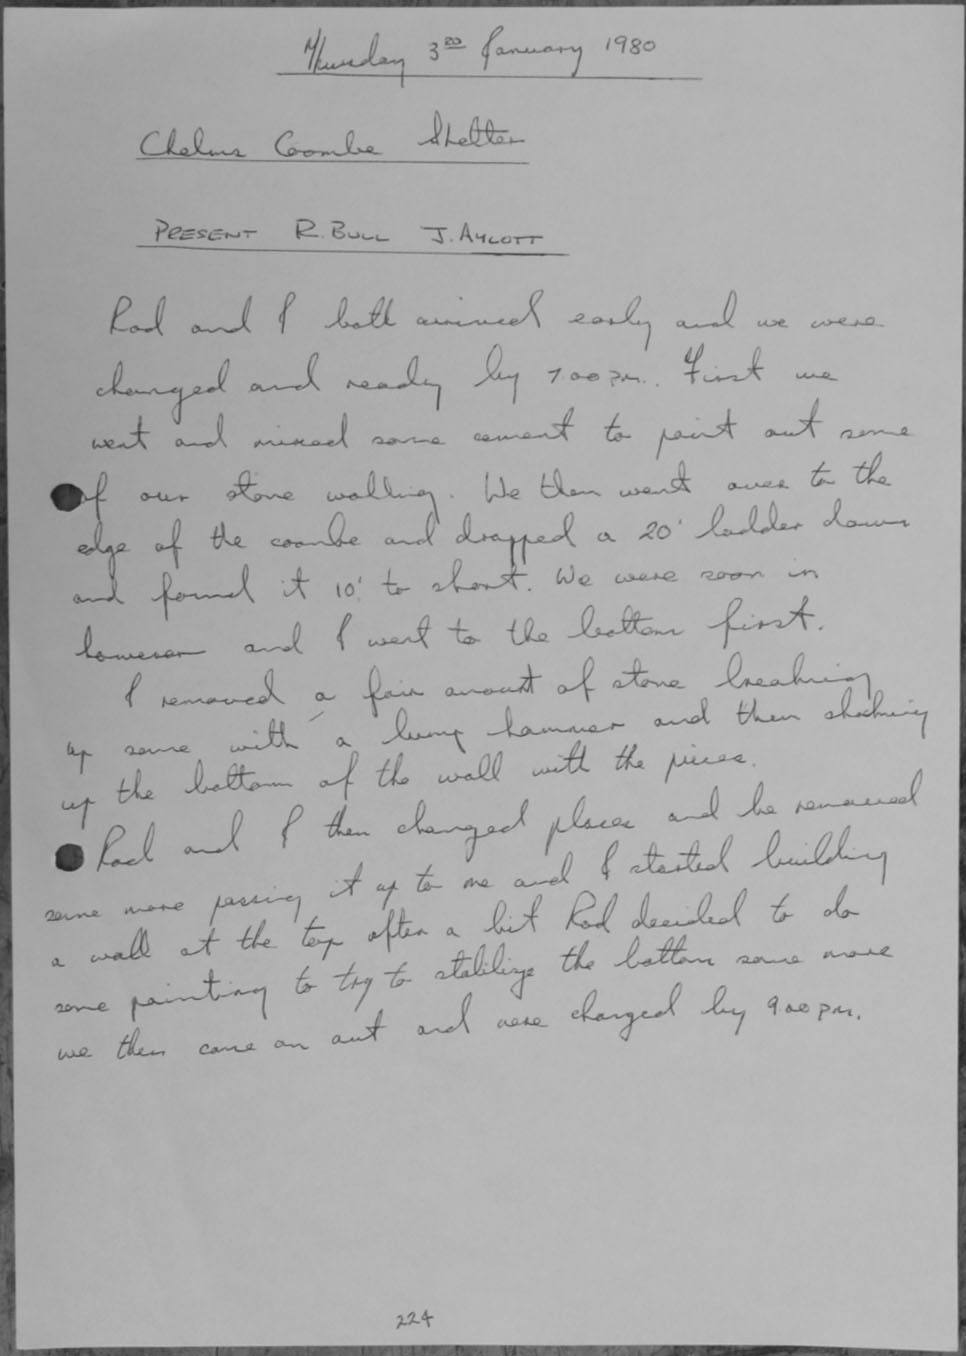 Thursday 3RD January 1980
Chelms Coombe Shelter
PRESENT R. BULL J. AYLOTT
Rod and I both arrived early and we were
changed and ready by 7.00 PM. First we
went and mixed some cement to point out some
of our stone walling. We then went over to the
edge of the coombe and dropped a 20' ladder down
and found it 10' to short. We were soon in
however and I went to the bottom first.
I removed a fair amount of stone breaking
up some with a lump hammer and then shoring
up the bottom of the wall with the pieces.
Rod and I then changed places and he removed
some more passing it up to me and I started building
a wall at the top after a bit Rod decided to do
some pointing to try to stabilize the bottom some more
we then came on out and were changed by 9.00 PM.
224